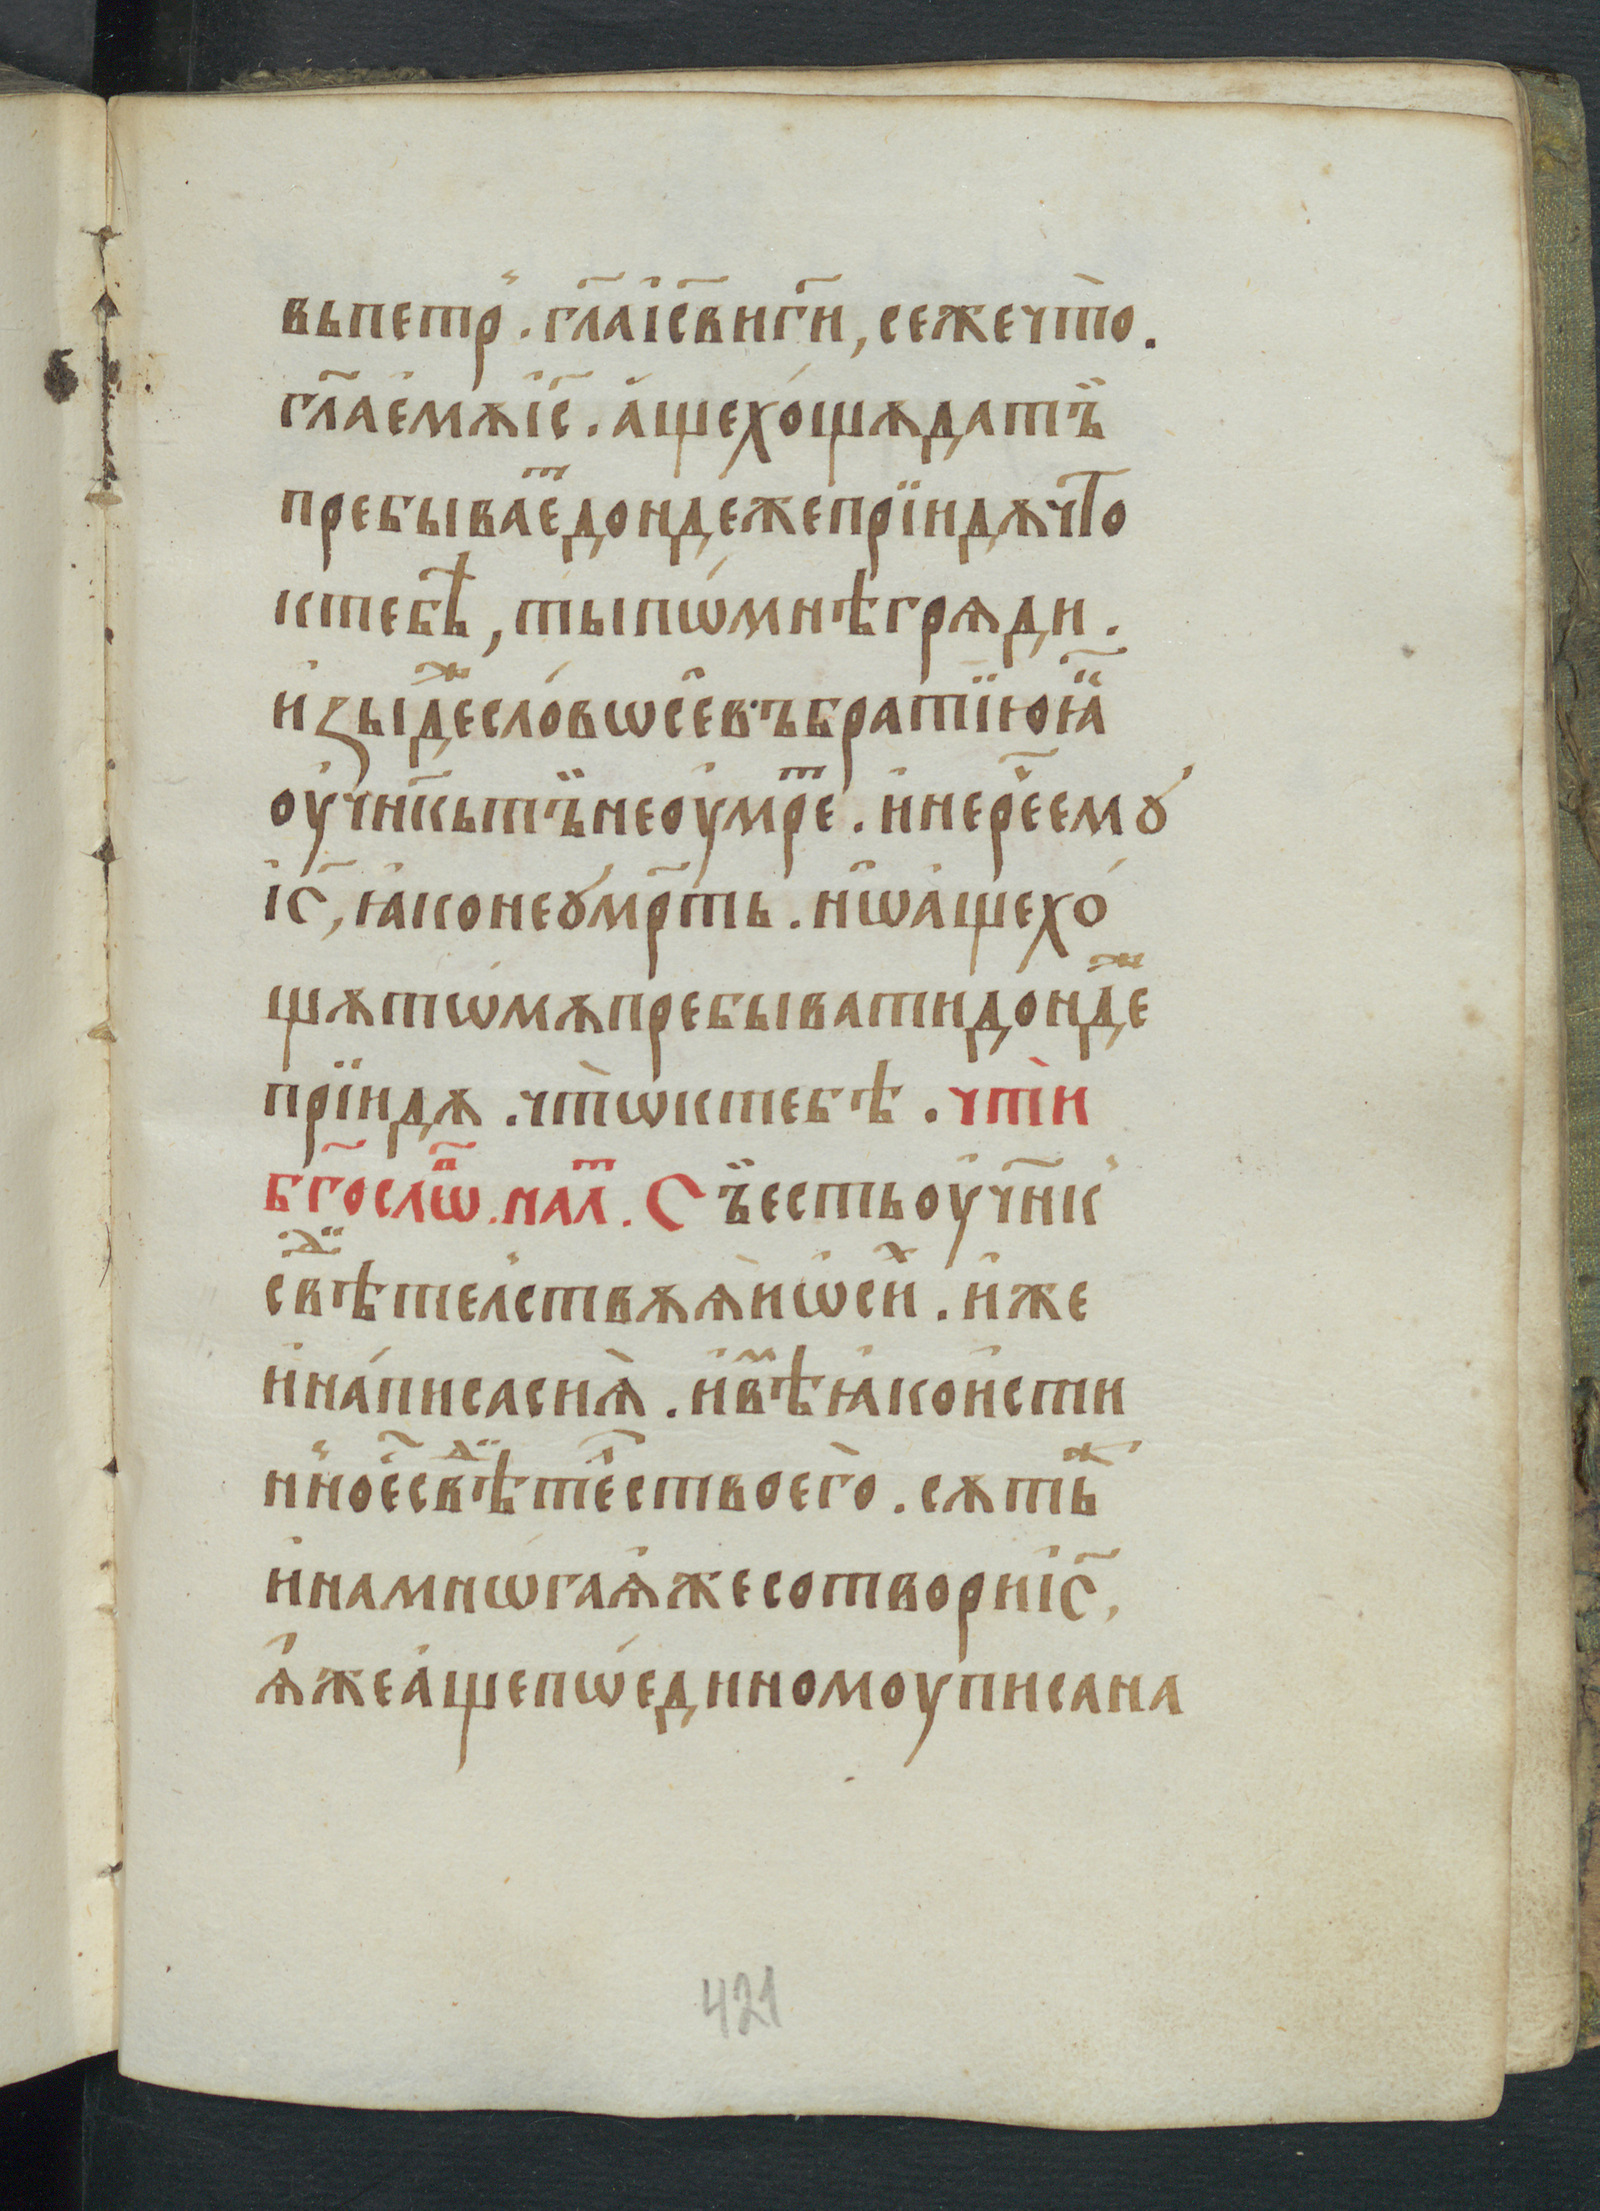 вьпетръ . гл҃аіс҃ви гі҃и , сежечто̀ .
гл҃ае́мꙋіс҃ . а́щехо́щѫдатъ̏
пребывае́ⷮдондежепрїидѫчⷮо
ктебѣ̀ , ты̀пѡ́мнѣгрѧди .
и҆ꙁыⷤдесло́вѡсе̂въбратїюꙗ҃
ѻу҆чн҃кьтъ̏неоу҆мреⷮ . и҆нере҃ему
іс҃ , ꙗ҆конеꙋ́мр҃ть . н̑ѡа҆щехо́
щѫтѡ́мѫпребыватидондеⷤ
прїидѫ . что̀ѡктебѣ . чтѝ
бг҃ослѡⷡ҇ . наⷧ҇ⷮ . Съ̏естьоу҆чн҃к
свѣⷣтелствѫѧ҆̀иѡ҆сиⷯ . и҆же
и҆на́писасиѧ̀ . и҆вѣⷨꙗ҆кои҆сти
нноее҆҃свѣⷣтеⷧ҇ствоего̀ . сѫтьⷤ
и҆намнѡгаꙗ҆жесотвориіс҃ ,
ꙗ҆̂жеа҆щепѡе҆диномоуписана
421